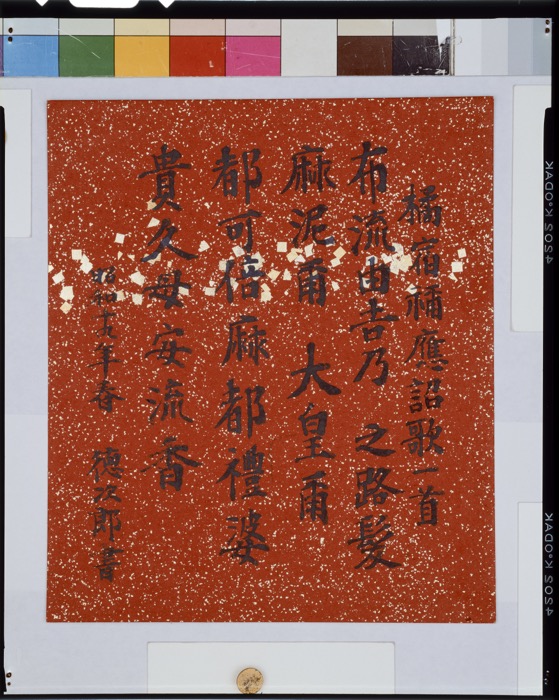 橘宿祢應詔歌一首
布流由吉乃 之路髮
麻泥爾 大皇爾
都可倍麻都禮婆
貴久母安流香
昭和十五年春 德次郎書
KODAK
KODAK